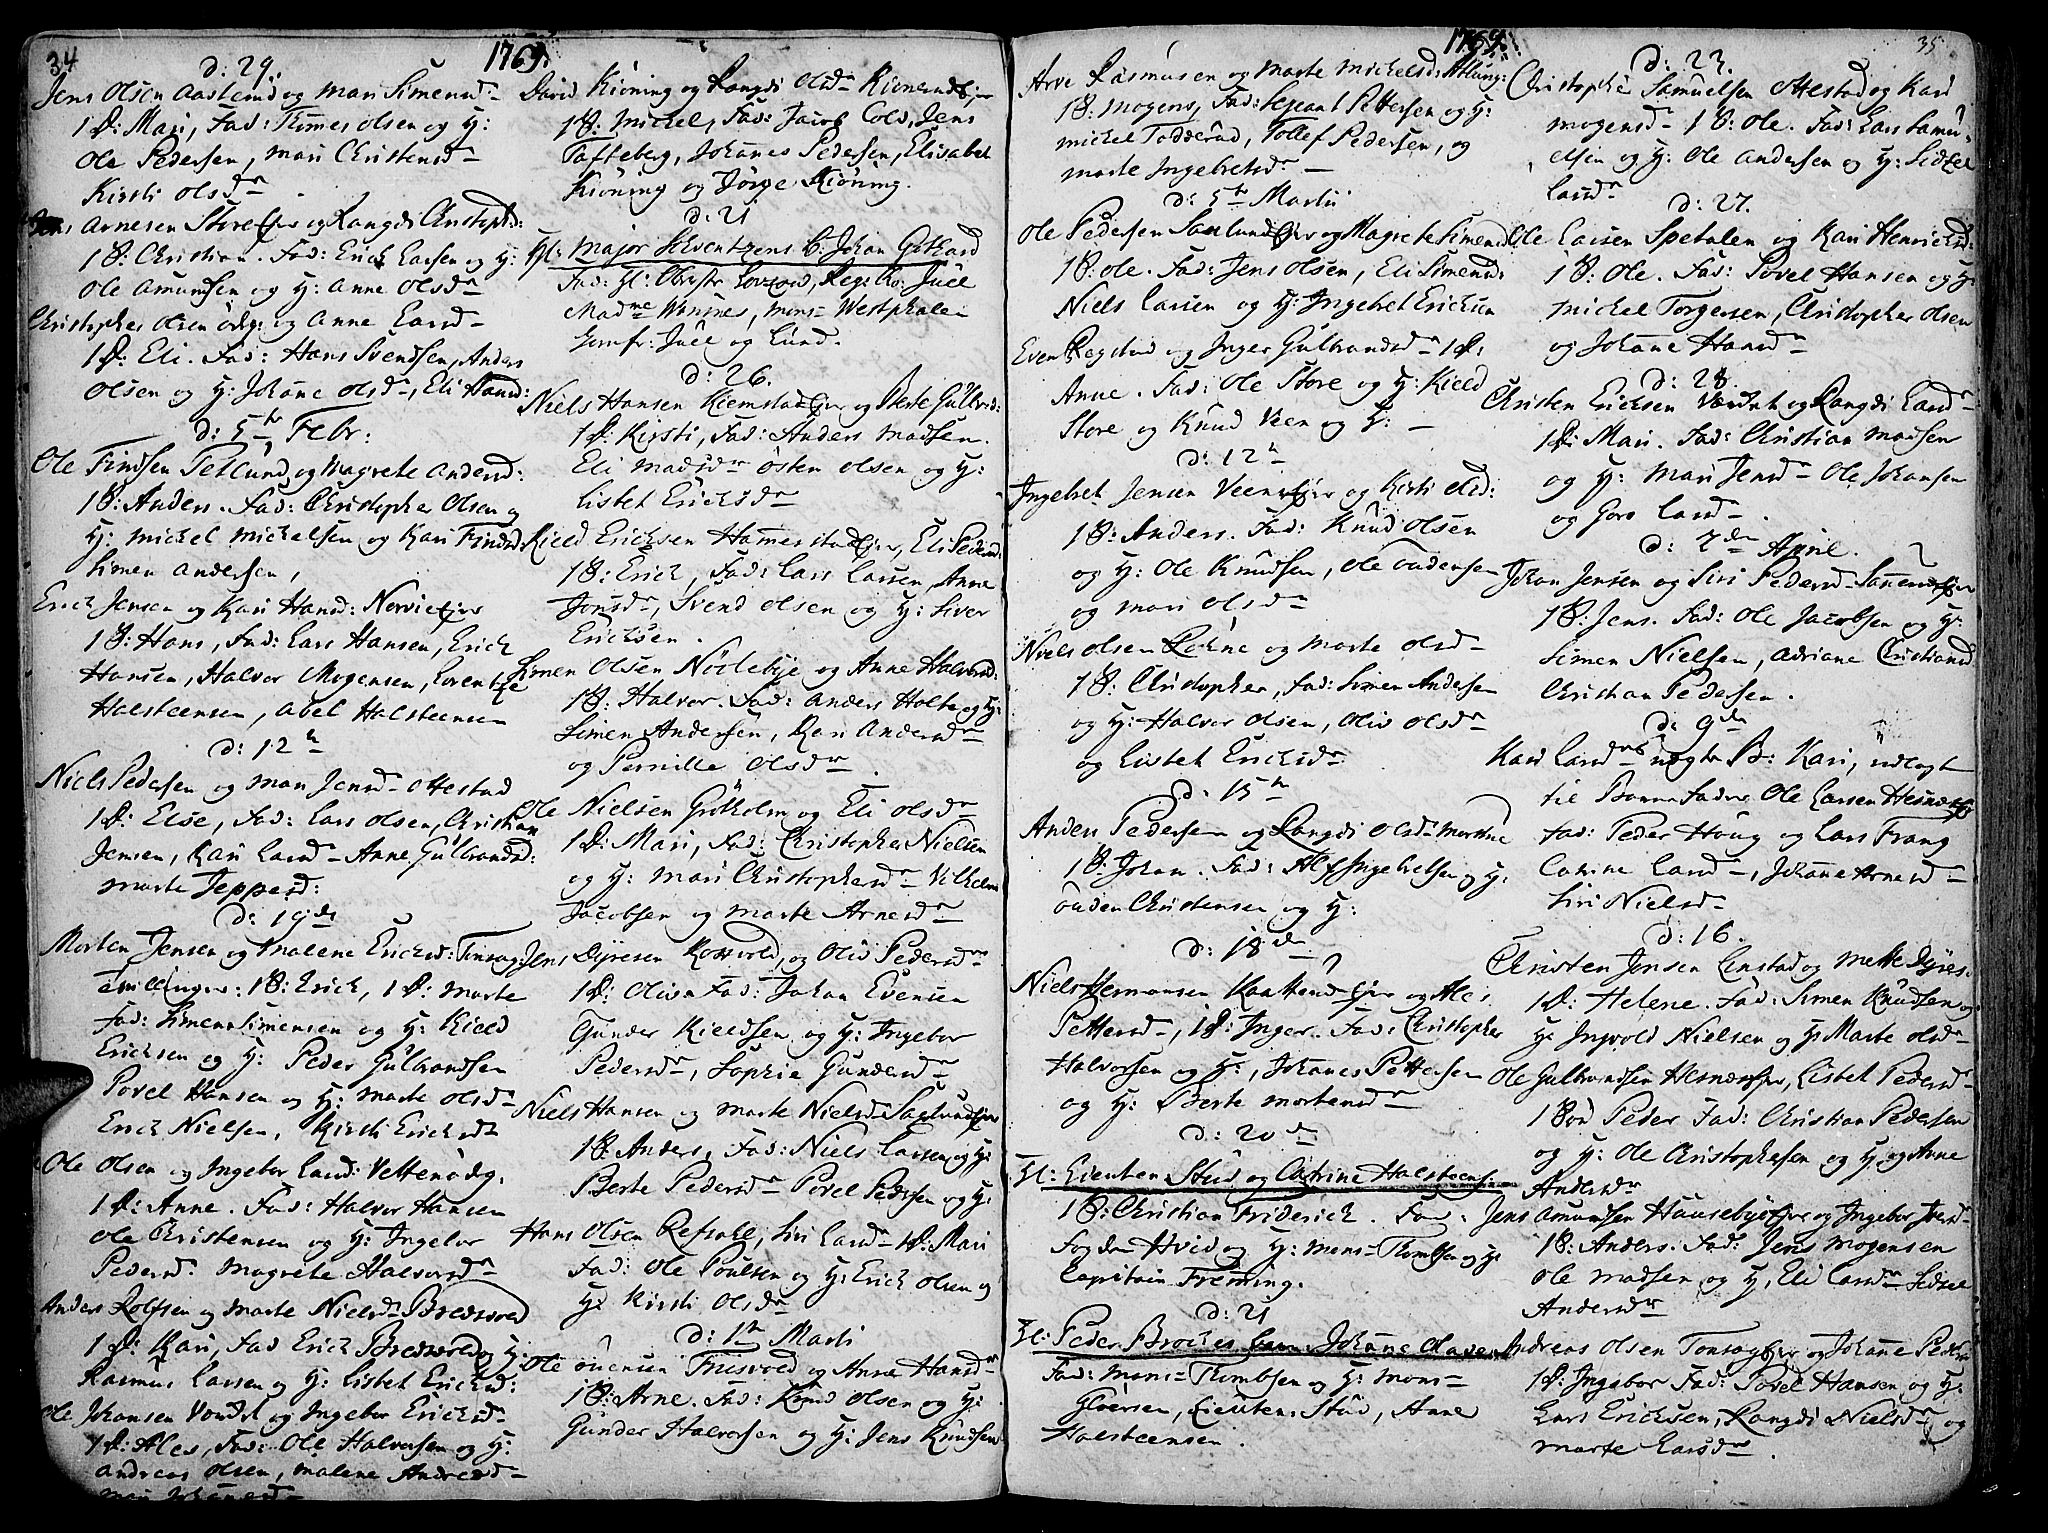 34
1769.
d: 29.
Jens Olsen Aasterud og Mari Simensd
1 D: Mari, Fad: Tomes olsen og H:
Ole Pedersen, Mari Christensd
Kirsti olsd
Arnesen Store og Rangdi Christophd:
1 S: Christian. Fad: Erich Larsen og H:
Ole Amundsen og H: Anne olsd
Christopher olsen ødeg: og Anne Larsd
1 D: Eli. Fad: Hans Svendsen, Anders
olsen og H: Johane olsd, Eli Hansd:
d: 5te Febr:
Ole Findsen Petlund og Magrete Andersd:
1 S: Anders. Fad: Christopher Olsen og
H: Michel Michelsen og Kari Findsd
Simen Andersen,
Erich Jensen og Kari Hansd:
1 S: Hans, Fad: Lars Hansen, Erich
Hansen, Halvor Mogensen, Lorentze
Halsteensen, Abel Halsteensen
d: 12te
Niels Pedersen og Mari Jensd Ottestad
1 D: Else, Fad: Lars olsen, Christian
Jensen, Kari Larsd Anne Gulbrandsd:
Marte Jeppesd:
d: 19de
Morten Jensen og Malene Ericksd:
Tvillinger: 1 S: Erich, 1 D: Marte
Fad: Simen Simensen og H: Kield
Ericksen og H: Peder Gulbrandsen
Povel Hansen og H: Marte olsd
Erich Nielsen, Kirsti Ericksd
Ole Olsen og Ingebor Larsd: Vettenødg.
1 D: Anne. Fad: Halvor Hansen
Ole Christensen og H: Ingebor
Pedersd: Magrete Halvorsd
Anders Rolfsen og Marte Nielsd Bredsvold
1 D: Kari, Fad Erich Bredsvold og H:
Rasmus Larsen og H: Lisbet Ericksd:
Ole Johansen og Ingebor Ericksd
1 D: Ales, Fad: Ole Halvorsen og H:
Andreas olsen, Malene Andreasd
Mari
David Kiøning og Rangdi Olsd
1 S: Michel, Fad: Jacob Cold, Jens
Tafteberg, Johanes Pedersen, Elisabet
Kiöning og Jörge Kiöning.
d: 21
Hl: Major Schventzens B. Johan Gothard
Fad: Hl: Juel
Madme Wærnes, Mons Westphalen
Jomfr: Juel og Lund.
d: 26.
Niels Hansen Kiemstad og Berte Gulbrd:
1 D: Kirsti, Fad: Anders Madsen.
Eli Madsd östen olsen og H:
Lisbet Ericksd
Kield Ericksen Hamerstad, Eli Pedersd:
1 S: Erich, Fad: Lars Larsen, Anne
Jonsd, Svend olsen og H: Siver
Ericksen.
Simen Olsen Nöclebye og Anne Halvorsd:
1 S: Halvor. Fad: Anders Holte og H:
Simen Andersen, Kari Andersd
og Pernille Olsd.
Ole Nielsen Grötholm og Eli olsd
1 D: Mari, Fad: Christopher Nielsen
og H: Mari Christophersd Vilhelm
Jacobsen og Marte Arnesd
Jens Dyresen og Oliv Pedersd
1 D: Oliva Fad: Johan Evensen
Gunder Kieldsen og H: Ingebor
Pedersd, Sophie Gundersd
Niels Hansen og Marte Nielsd Saxlund
1 S: Anders, Fad: Niels Larsen og H:
Berte Pedersd Povel Pedersen og H:
Hans Olsen Refsahl, Siri Larsd 1 D: Mari
Fad: Ole Poulsen og H: Erich Olsen og
H: Kirsti Olsd
d: 1te Marti
Ole Frisvold og Anne Hansd
1 S: Arne. Fad: Knud Olsen og H:
Gunder Halvorsen og H: Jens Knudsen
1769.
35
Arve Rasmusen og Marte Michelsd:
1 S: Mogens, Fad: Sejeant Pettersen og H:
Michel Todderud, Tollef Pedersen, og
Marte Ingebretsd
d: 5te Martii
Ole Pedersen Saxlund og Magrete Simensd
1 S: Ole. Fad: Jens Olsen, Eli Simensd:
Niels Larsen og H: Ingebret Ericksen
Even Regstad og Inger Gulbrandsd 1 D:
Anne. Fad: Ole Store og H: Kield
Store og Knud Veen og H:
d: 12te
Ingebret Jensen Veen og Kirsti olsd:
1 S: Anders. Fad: Knud Olsen
og H: Ole Knudsen, Ole Oudensen
og Mari olsd
Niels olsen Rohne og Marte olsd
1 S: Christopher, Fad: Simen Andersen
og H: Halvor olsen, Oliv olsd
og Lisbet Ericksd
d: 15te
Anders Pedersen og Rangdi olsd
1 S: Johan. Fad: Alf Ingebretsen og H:
Ouden Christensen og H:
d: 18de
Niels Hermansen og Ales
Pettersd, 1 D: Inger. Fad: Christopher
Halvorsen og H:, Johanes Pettersen
og H: Berte Mortensd
d: 20de
Hl: Lieuten Stud og Catrine Halsteens
1 S: Christian Friderich. Fad:
Fogden Hvid og H: Mons Thombsen og H:
Capitain Fremming.
d: 21
Hl: Peder Broches barn Johanne
Fad: Mons Thombsen og H: Mons
Glöersen, Lieuten. Stud, Anne
Halsteensen.
d: 23.
Christopher Samuelsen Ottestad og Kari
Mogensd 1 S: Ole. Fad: Lars Samu-
elsen og H: Ole Andersen og H: Sidzel
Larsd
d: 27.
Ole Larsen Spetalen og Kari Henrichsd:
1 S: Ole. Fad: Povel Hansen og H:
Michel Torgersen, Christopher olsen
og Johane Hansd
d: 28.
Christen Ericksen og Rangdi Larsd
1 D: Mari. Fad: Christian Madsen
og H: Mari Jensd Ole Johansen
og Goro Larsd.
d: 2den April.
Johan Jensen og Siri Pedersd
1 S: Jens. Fad: Ole Jacobsen og H:
Simen Nielsen, Adriane Christiansd
Christian Pedersen.
d: 9de
Kari Larsd uægte B: Kari, udlagt
til Barne Fader Ole Larsen
Fad: Peder Houg og Lars Frang
Catrine Larsd, Johane Arnesd
Siri Nielsd
d: 16.
Christen Jensen Linstad og Mette Dyres:
1 D: Helene. Fad: Simen Knudsen og
H: Ingvold Nielsen og H: Marte olsd
Ole Gulbrandsen, Lisbet Pedersd
1 Sön Peder Fad: Christian Pedersen
og H: Ole Christophersen og H og Anne
Andersd
Jens Amundsen Hausebye og Ingebor Iversd
1 S: Anders. Fad: Jens Mogensen
Ole Madsen og H, Eli Larsd Sidsel
Andersd
Andreas Olsen og Johane Peders
1 D: Ingebor Fad: Povel Hansen og H:
Lars Ericksen, Rangdi Nielsd, og
Marte Larsd.